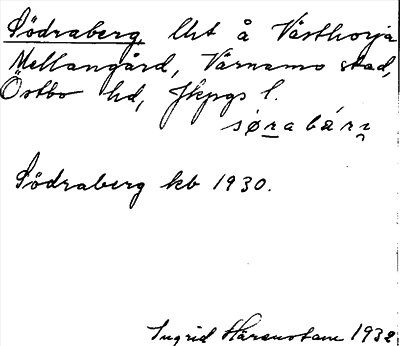 Södraberg, lht å Västhorja
Mellangård, Värnamo stad,
Östbo hd, Jkpgs l.
sørabárı
Södraberg kb 1930.
Ingrid 1932